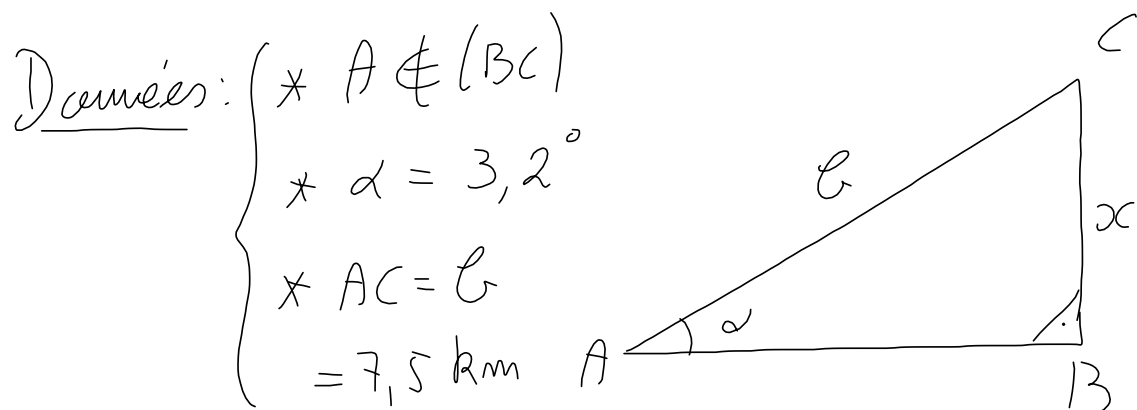 Données : { * A ∉ (BC)
* α = 3,2°
* AC = b
= 7,5 km
C
b
x
α
A
B